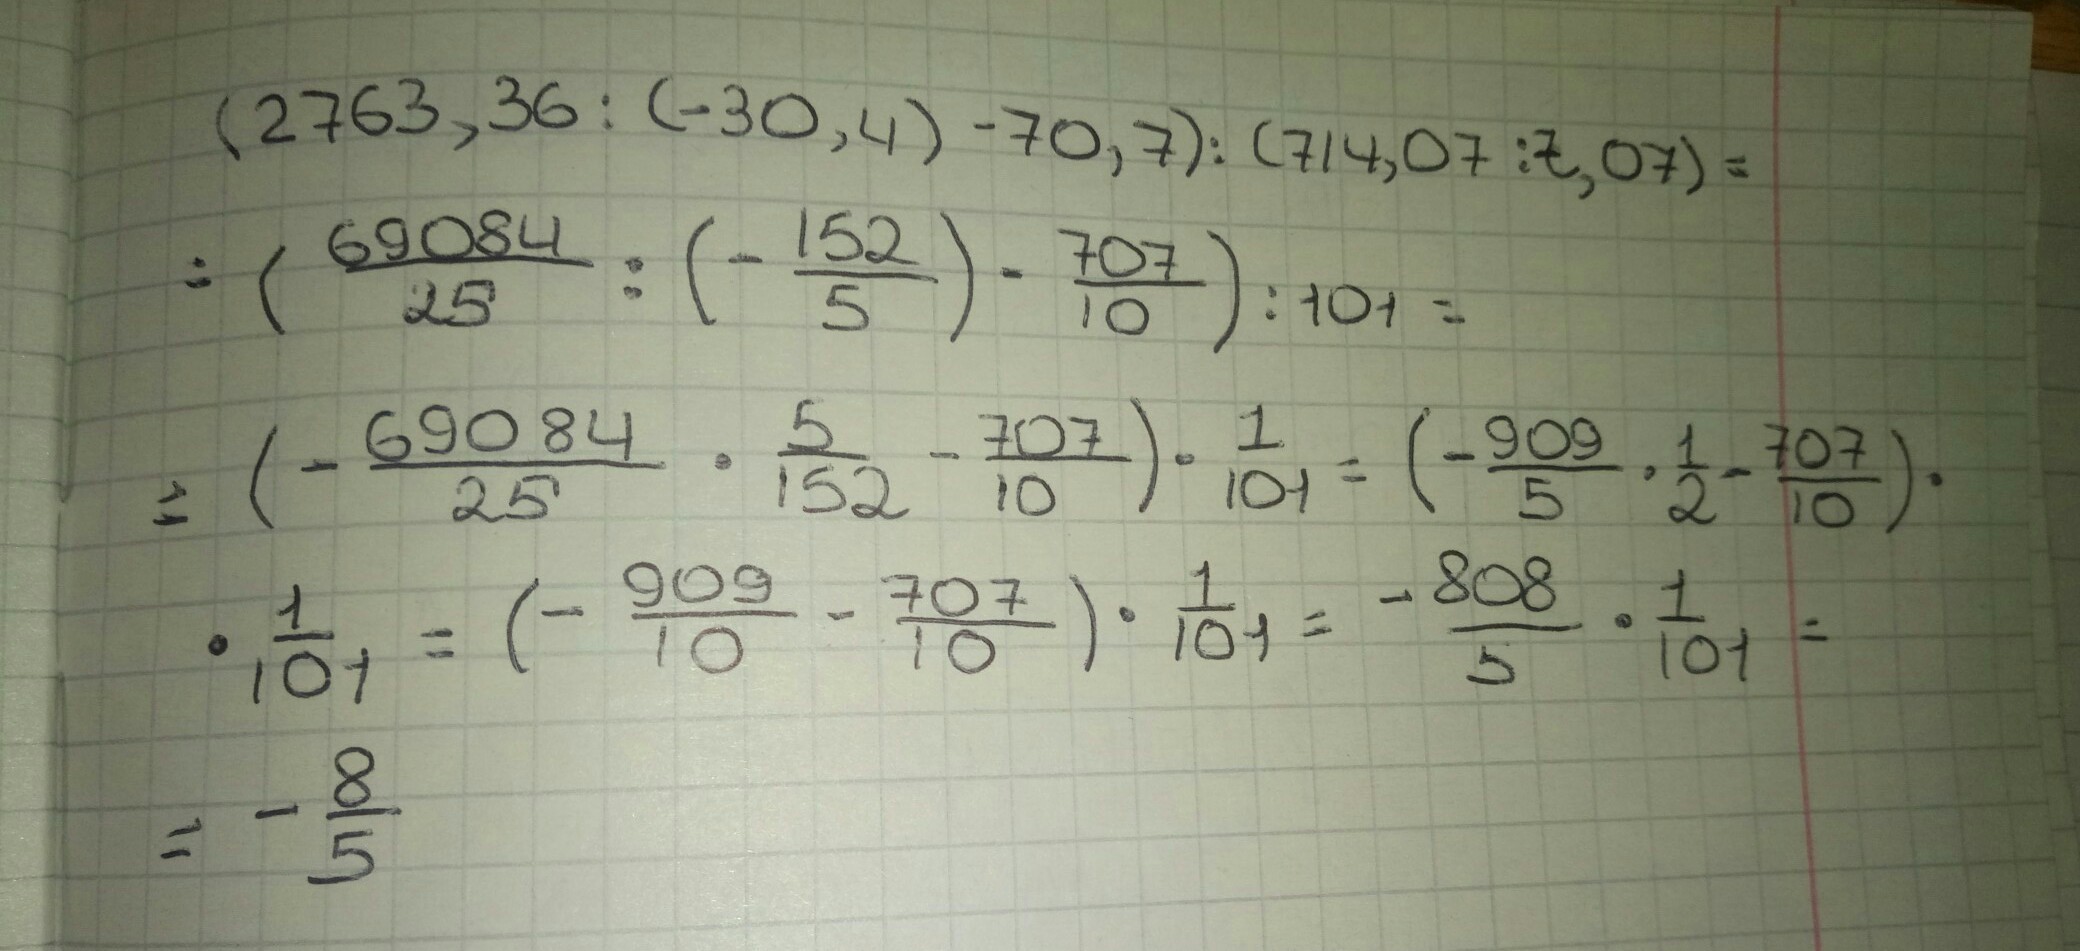 (2763,36 : (-30,4) - 70,7) : (714,07 : 7,07) =
= (69084/25 : (-152/5) - 707/10) : 101 =
= (-69084/25 · 5/152 - 707/10) · 1/101 = (-909/5 · 1/2 - 707/10) ·
· 1/101 = (-909/10 - 707/10) · 1/101 = -808/5 · 1/101 =
= -8/5